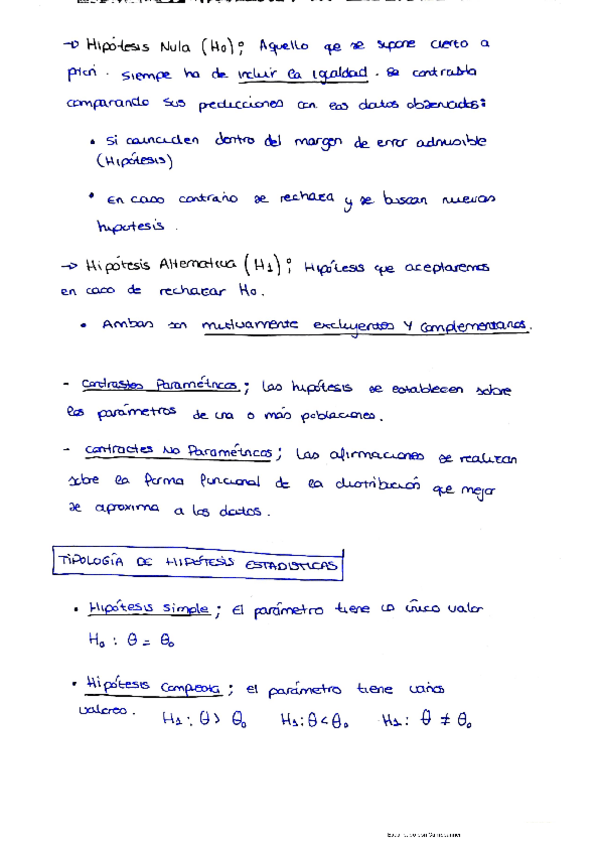 → Hipótesis Nula (H0); Aquello qe se supone cierto a
priori. siempe ha de incluir la igualdad. se contrasta
comparando sus predicciones con los datos observados:
• Si coinciden dentro del margen de error admisible
(Hipótesis)
• En caso contrario se rechaza y se buscan nuevas
hipotesis.
→ Hipótesis Alternativa (H1); Hipótesis que aceptaremos
en caso de rechazar H0.
• Ambas son mutuamente excluyentes y complementarias.
- Contrastes Paramétricos; Las hipótesis se establecen sobre
los parámetros de una o más poblaciones.
- Contrastes No Paramétricos; Las afirmaciones se realizan
sobre la forma funcional de la distribución que mejor
se aproxima a los datos.
TIPOLOGÍA DE HIPÓTESIS ESTADISTICAS
• Hipótesis simple; El parámetro tiene un único valor
H0 : θ = θ0
• Hipótesis Compuesta; el parámetro tiene varios
valores. H1: θ > θ0 H1: θ < θ0 H1: θ ≠ θ0